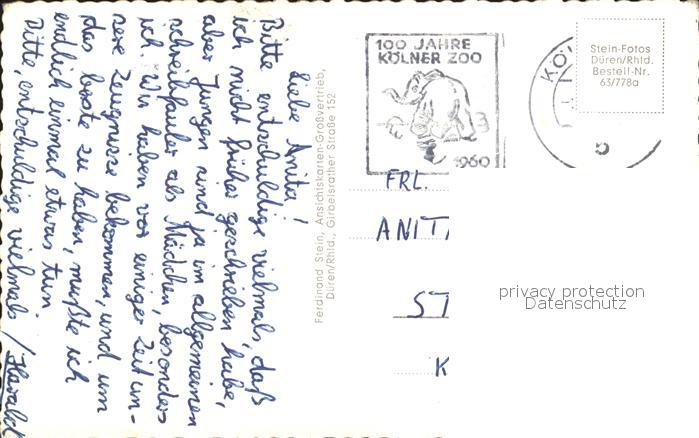 Liebe Anita!
Bitte entschuldige vielmals, daß
ich nicht früher geschrieben habe,
aber Jungen sind ja im allgemeinen
schreibfauler als Mädchen, besonders
ich. Wir haben vor einiger Zeit un-
sere Zeugnisse bekommen, und um
das beste zu haben, mußte ich
endlich einmal etwas tun.
Bitte, entschuldige vielmals / Harald
Ferdinand Stein, Ansichtskarten-Großvertrieb,
Düren/Rhld., Girbelsrather Straße 152
100 JAHRE
KÖLNER ZOO
1960
KÖL
Stein-Fotos
Düren/Rhld.
Bestell-Nr.
63/778a
FRL.
ANIT
ST
K
privacy protection
Datenschutz